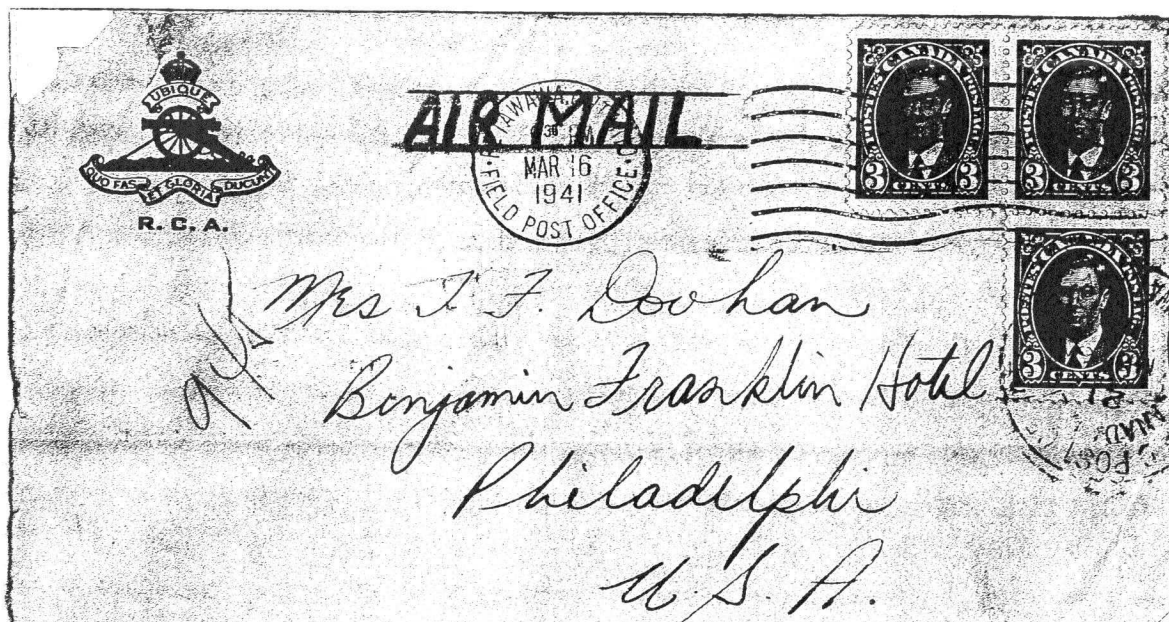 UBIQUE
QUO FAS ET GLORIA DUCUNT
R. C. A.
AIR MAIL
MAR 16
1941
FIELD POST OFFICE
POSTES CANADA POSTAGE
3 CENTS 3
POSTES CANADA POSTAGE
3 CENTS 3
POSTES CANADA POSTAGE
3 CENTS 3
Mrs T. F. Doohan
Benjamin Franklin Hotel
Philadelphi
U. S. A.